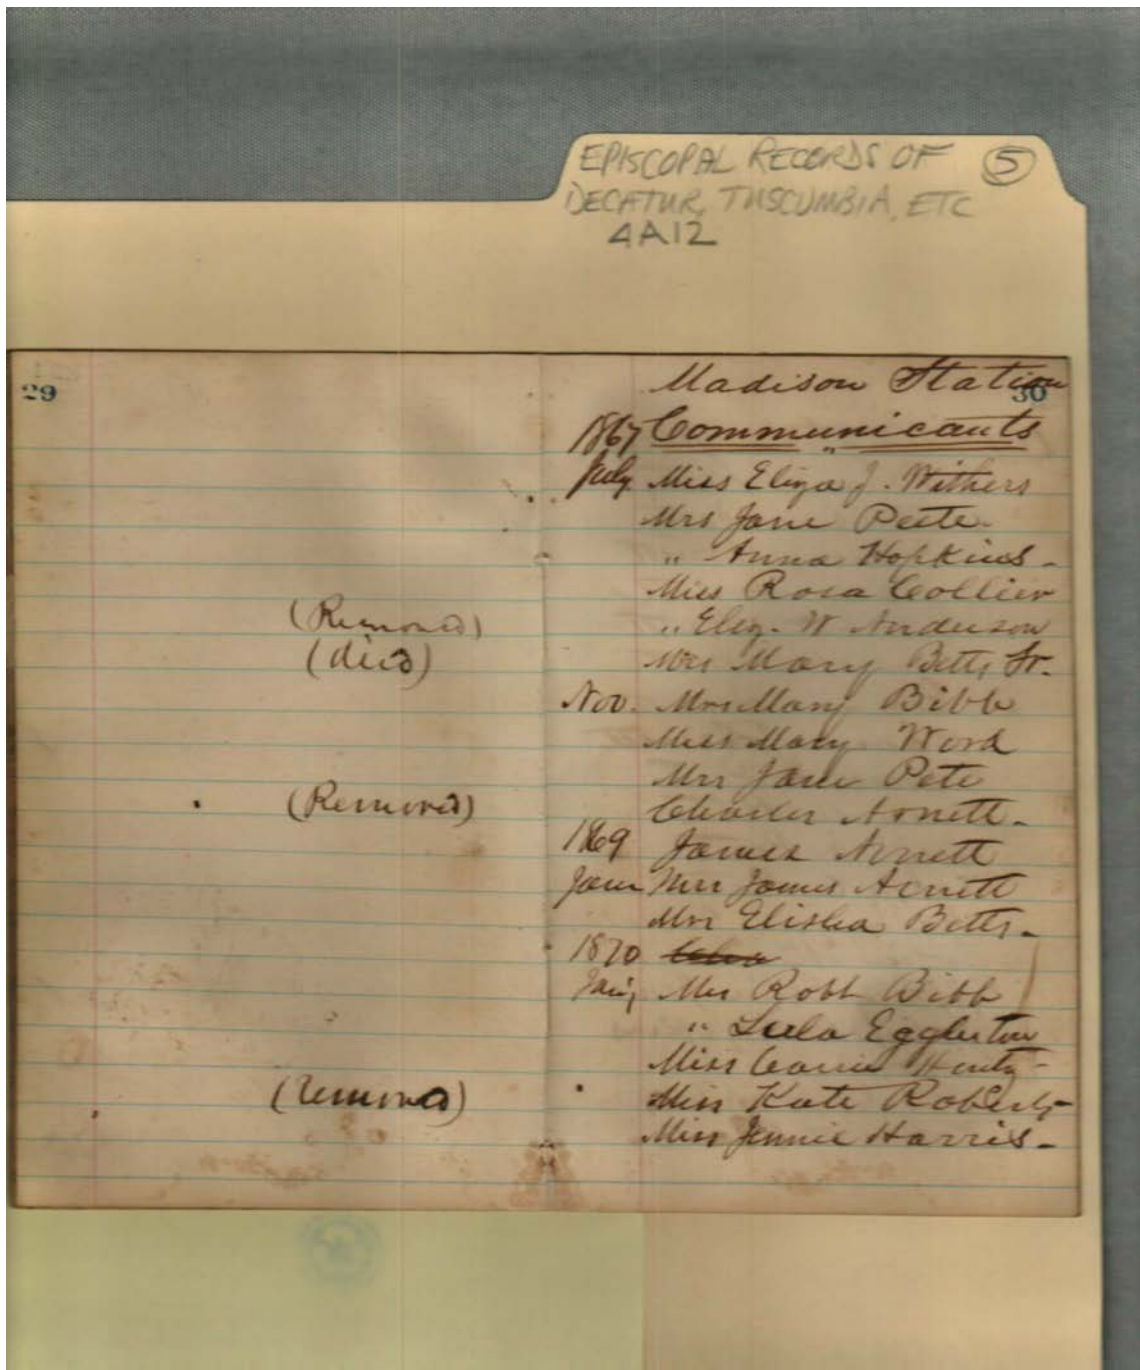 EPISCOPAL RECORDS OF 5
DECATUR, TUSCUMBIA, ETC
4A12
29
Madison Station
30
1867 Communicants
July Miss Eliza J. Withers
Mrs Jane Peete.
" Anna Hopkins -
Miss Rosa Collier
(Removed) " Eliz. W Anderson
(died) Mrs Mary Betts Sr.
Nov. Mrs Mary Bibb
Miss Mary Word
Mrs Jane Pete
(Removed) Charles Arnett -
1869 James Arnett
June Mrs James Arnett
Mrs Elisha Betts -
1870
Mrs Robt Bibb
" Lula Eggleston
Miss Carrie
(removed) Miss Kate Roberts -
Miss Jennie Harris -